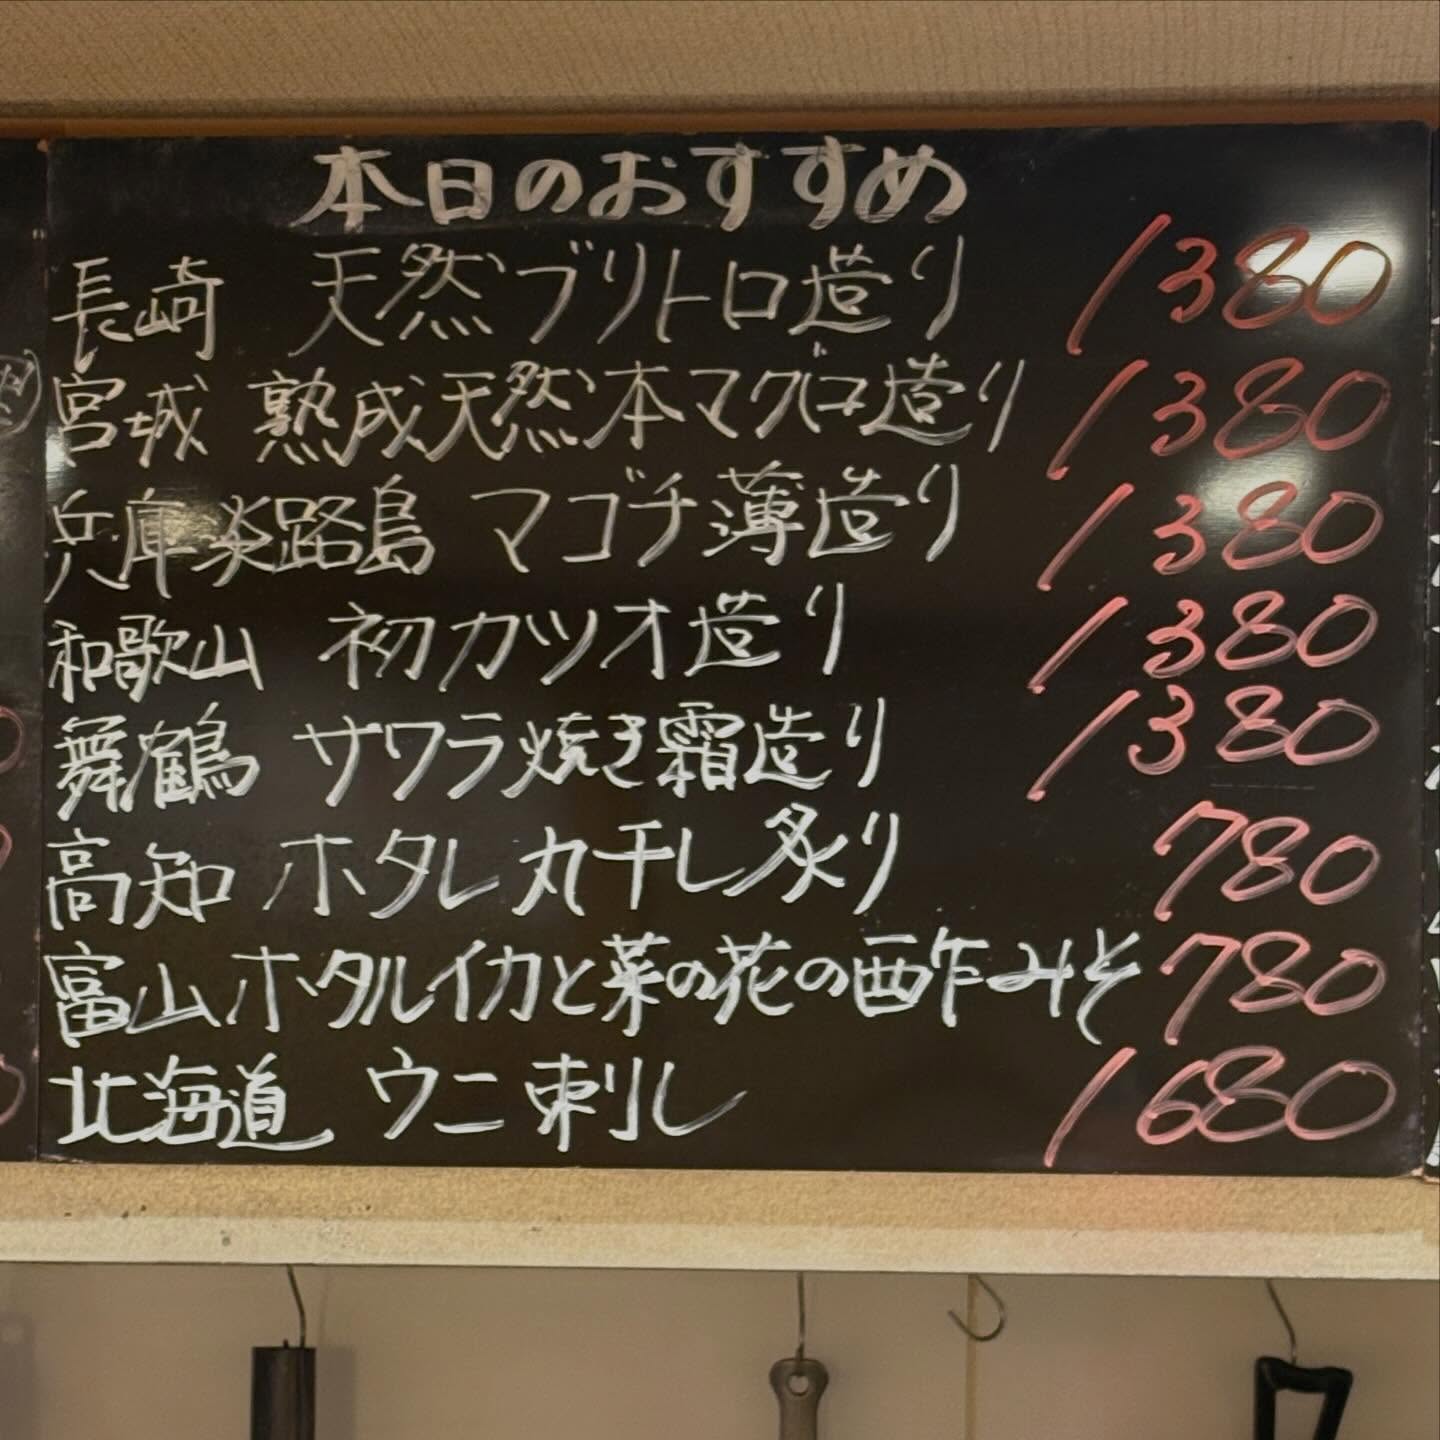 本日のおすすめ
長崎 天然ブリトロ造り 1380
宮城 熟成天然本マグロ造り 1380
兵庫淡路島 マゴチ薄造り 1380
和歌山 初カツオ造り 1380
舞鶴 サワラ焼き霜造り 1380
高知 ホタレ丸干し炙り 780
富山ホタルイカと菜の花の酢みそ 780
北海道 ウニ刺し 1680